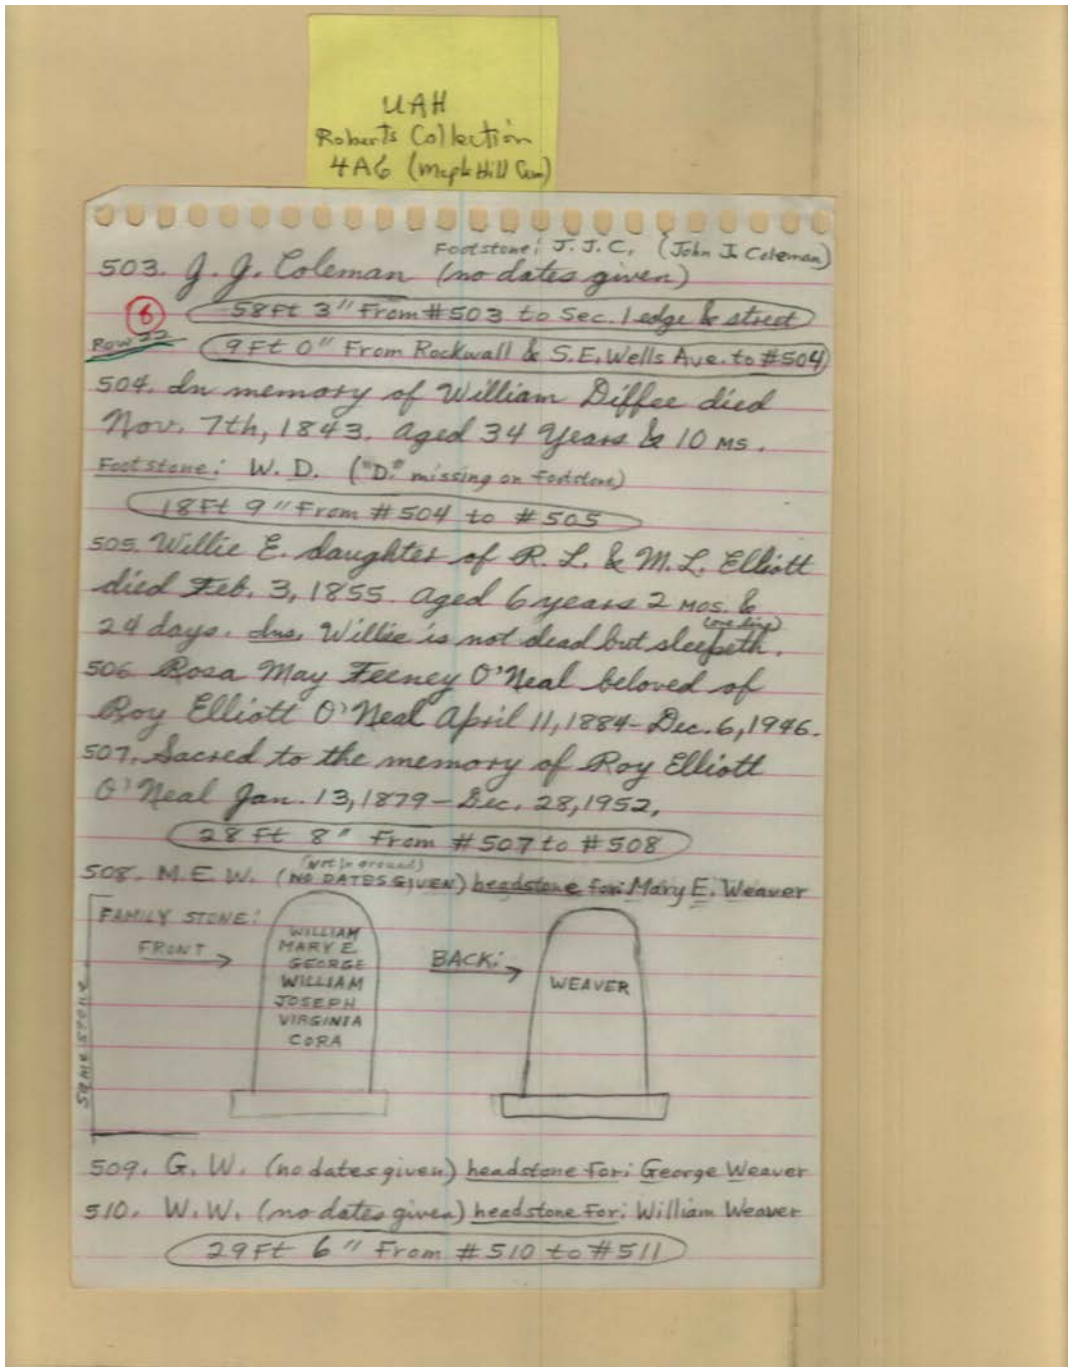 UAH
Roberts Collection
4A6 (Maple Hill Cem)
Footstone: J. J. C. (John J. Coleman)
503. J. J. Coleman (no dates given)
6 58Ft 3" From #503 to Sec. 1 edge & street
Row 22 9Ft 0" From Rockwall & S.E. Wells Ave. to #504
504. In memory of William Diffee died
Nov. 7th, 1843. aged 34 Years & 10 MS.
Footstone: W. D. ("D." missing on footstone)
18Ft 9" From #504 to #505
505. Willie E. daughter of R. L. & M. L. Elliott
died Feb. 3, 1855. aged 6 years 2 MOS. &
(one line)
24 days. Ins. Willie is not dead but sleepeth.
506 Rosa May Feeney O'Neal beloved of
Roy Elliott O'Neal April 11, 1884-Dec. 6, 1946.
507. Sacred to the memory of Roy Elliott
O'Neal Jan. 13, 1879-Dec. 28, 1952.
28Ft 8" From #507 to #508
(Not in ground)
508. M. E. W. (NO DATES GIVEN) headstone for: Mary E. Weaver
FAMILY STONE:
FRONT
WILLIAM
MARY E
GEORGE
WILLIAM
JOSEPH
VIRGINIA
CORA
BACK:
WEAVER
SAME STONE
509. G. W. (no dates given) headstone for: George Weaver
510. W. W. (no dates given) headstone for: William Weaver
29Ft 6" From #510 to #511